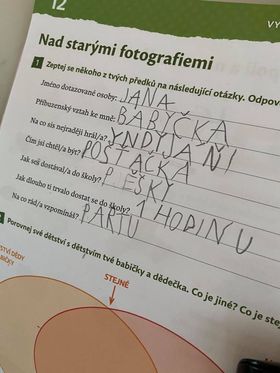 12
VY
Nad starými fotografiemi
1 Zeptej se někoho z tvých předků na následující otázky. Odpov
Jméno dotazované osoby: JANA
Příbuzenský vztah ke mně: BABYČKA
Na co sis nejraději hrál/a? YNDYJÁNI
Čím jsi chtěl/a být? POŠŤAČKA
Jak jsi dostával/a do školy? PĚŠKY
Jak dlouho ti trvalo dostat se do školy? 1 HODINU
Na co rád/a vzpomínáš? PARTU
Porovnej své dětství s dětstvím tvé babičky a dědečka. Co je jiné? Co je stej
STVÍ DĚDY
BIČKY
STEJNÉ